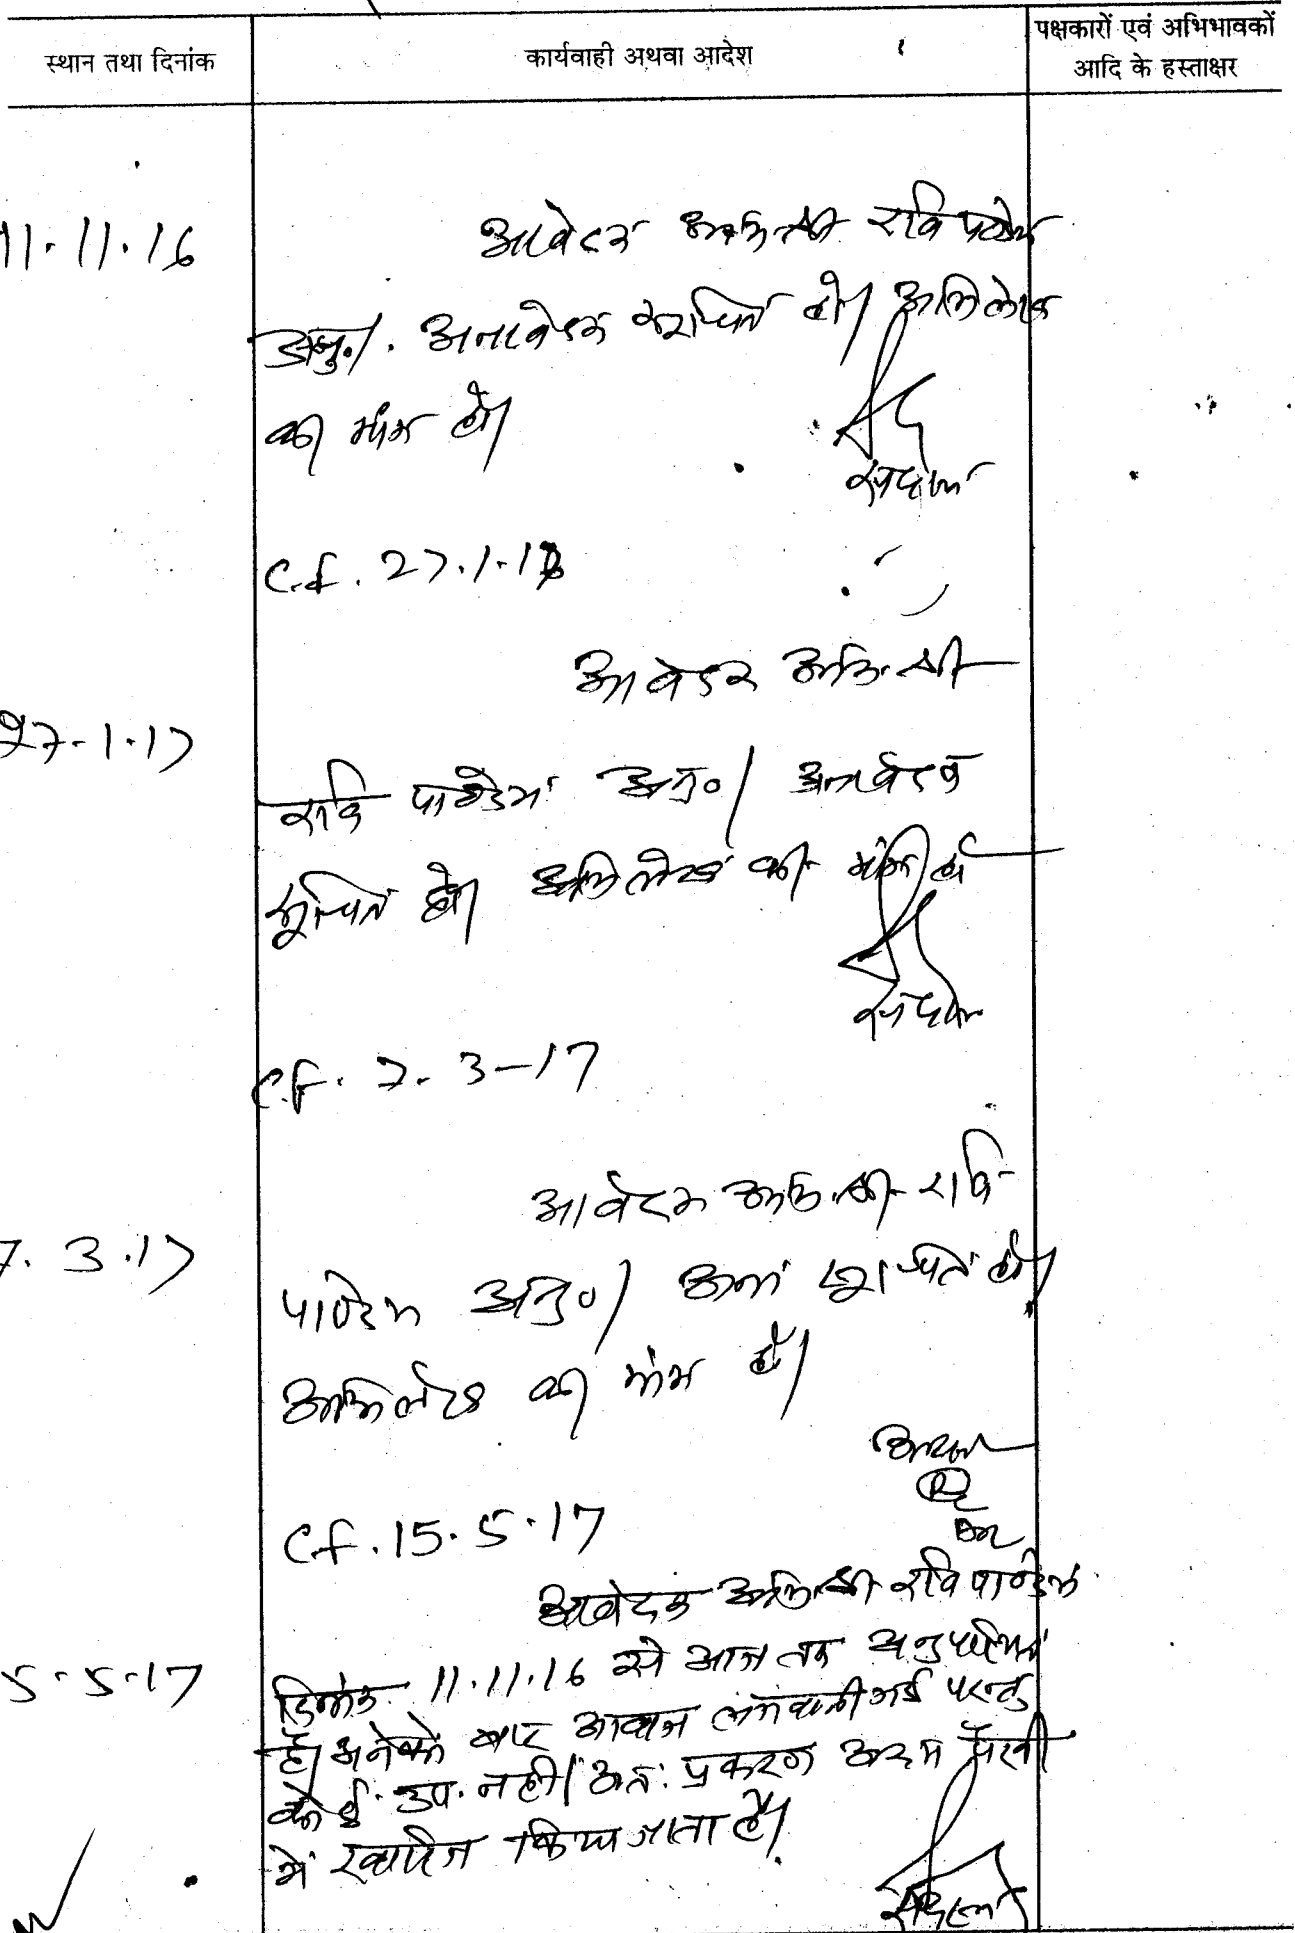 स्थान तथा दिनांक
कार्यवाही अथवा आदेश
पक्षकारों एवं अभिभावकों
आदि के हस्ताक्षर
11.11.16
आवेदक अभि. श्री रवि पाण्डेय
अनु.। अनावेदक सूचित हो। अभिलेख
की मांग हो।
C.f. 27.1.17
आवेदक अभि. श्री
27-1-17
रवि पाण्डेय अनु०। अनावेदक
सूचित हो। अभिलेख की मांग हो
C.f. 7. 3-17
आवेदक अभि. श्री रवि
7. 3.17
पाण्डेय अनु०। अना सूचित हो।
अभिलेख की मांग हो।
C.f. 15.5.17
आवेदक अभि. श्री रवि पाण्डेय
5-5-17
दिनांक 11.11.16 से आज तक अनुपस्थित
है। अनेको बार आवाज लगवायी गई परन्तु
कोई उप. नही। अतः प्रकरण अदम पैरवी
में खारिज किया जाता है।